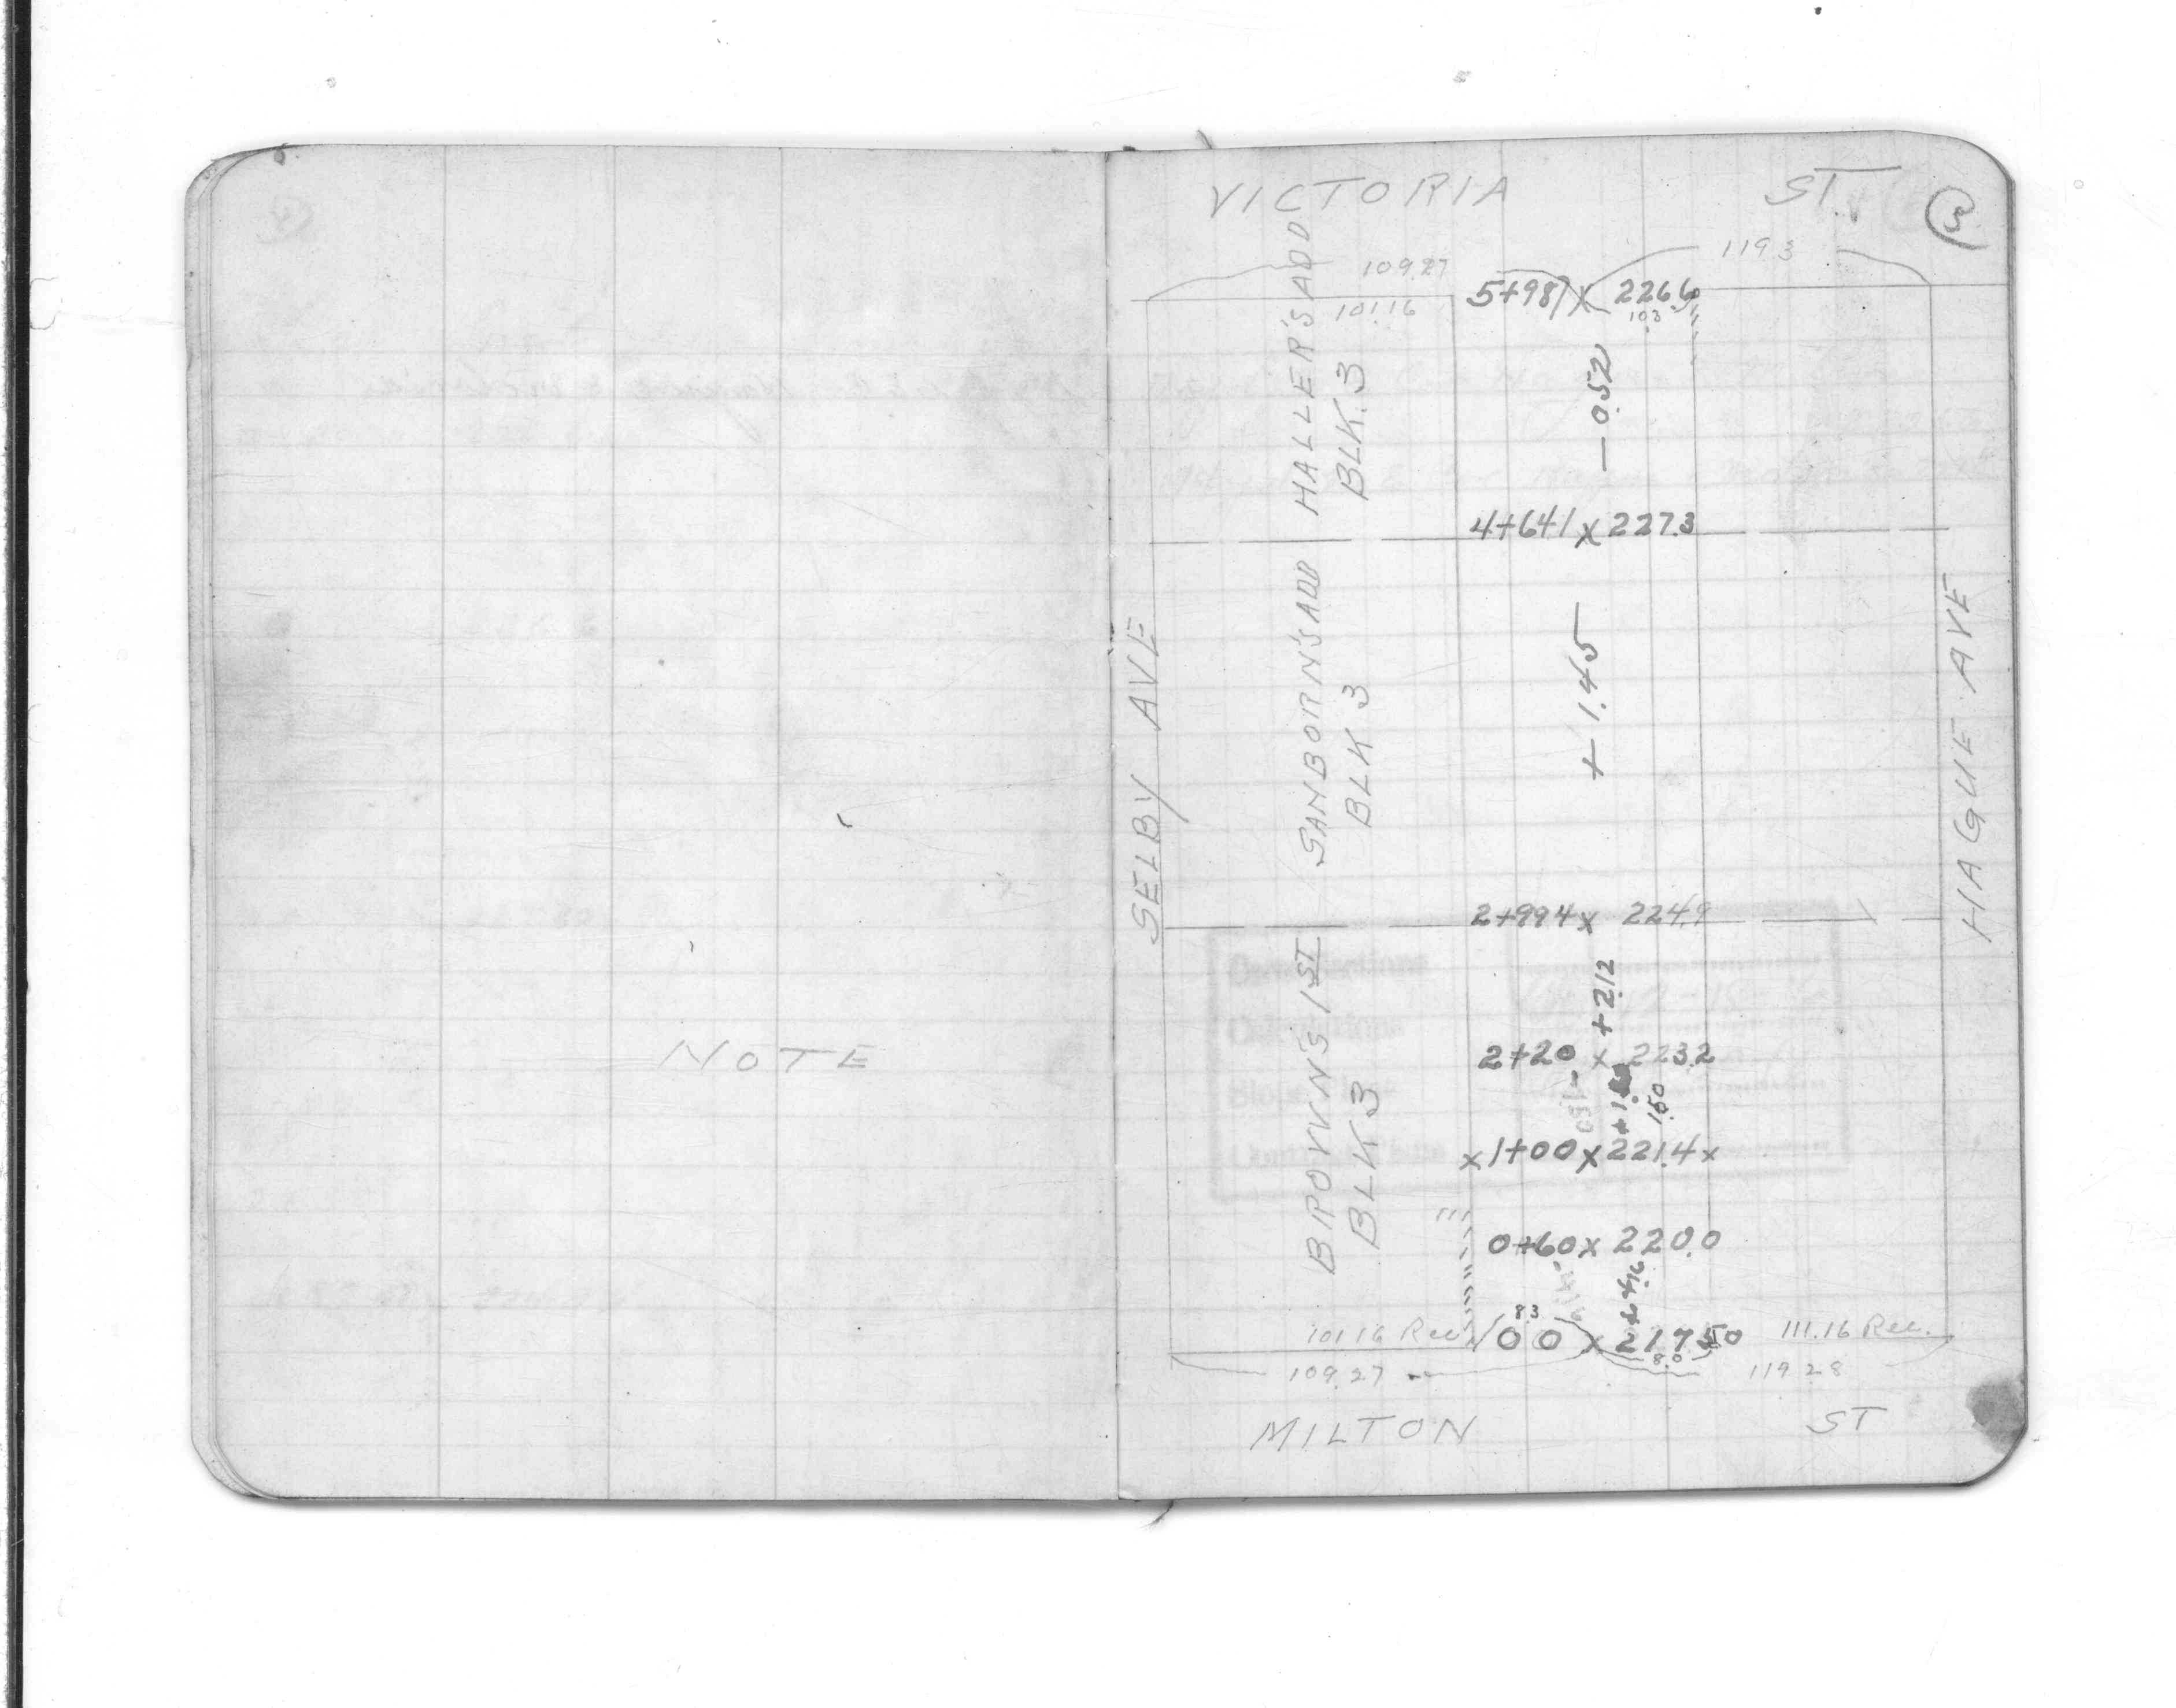 NOTE
VICTORIA ST.
3
119.3
109.27
5+987 x 226.6
101.16
10.3
HALLER'S ADD
BLK. 3
- 0.52
4+641 x 227.3
SELBY AVE
SANBORN'S ADD
BLK 3
+ 1.45
HAGUE AVE
2+994 x 224.9
BROWN'S 1ST
BLK 3
+ 2.12
2+20 x 223.2
1.50
x 1+00 x 221.4 x
0+60 x 220.0
8.3
101.16 Rec.
00 x 217.50
111.16 Rec.
8.0
109.27
119.28
MILTON ST